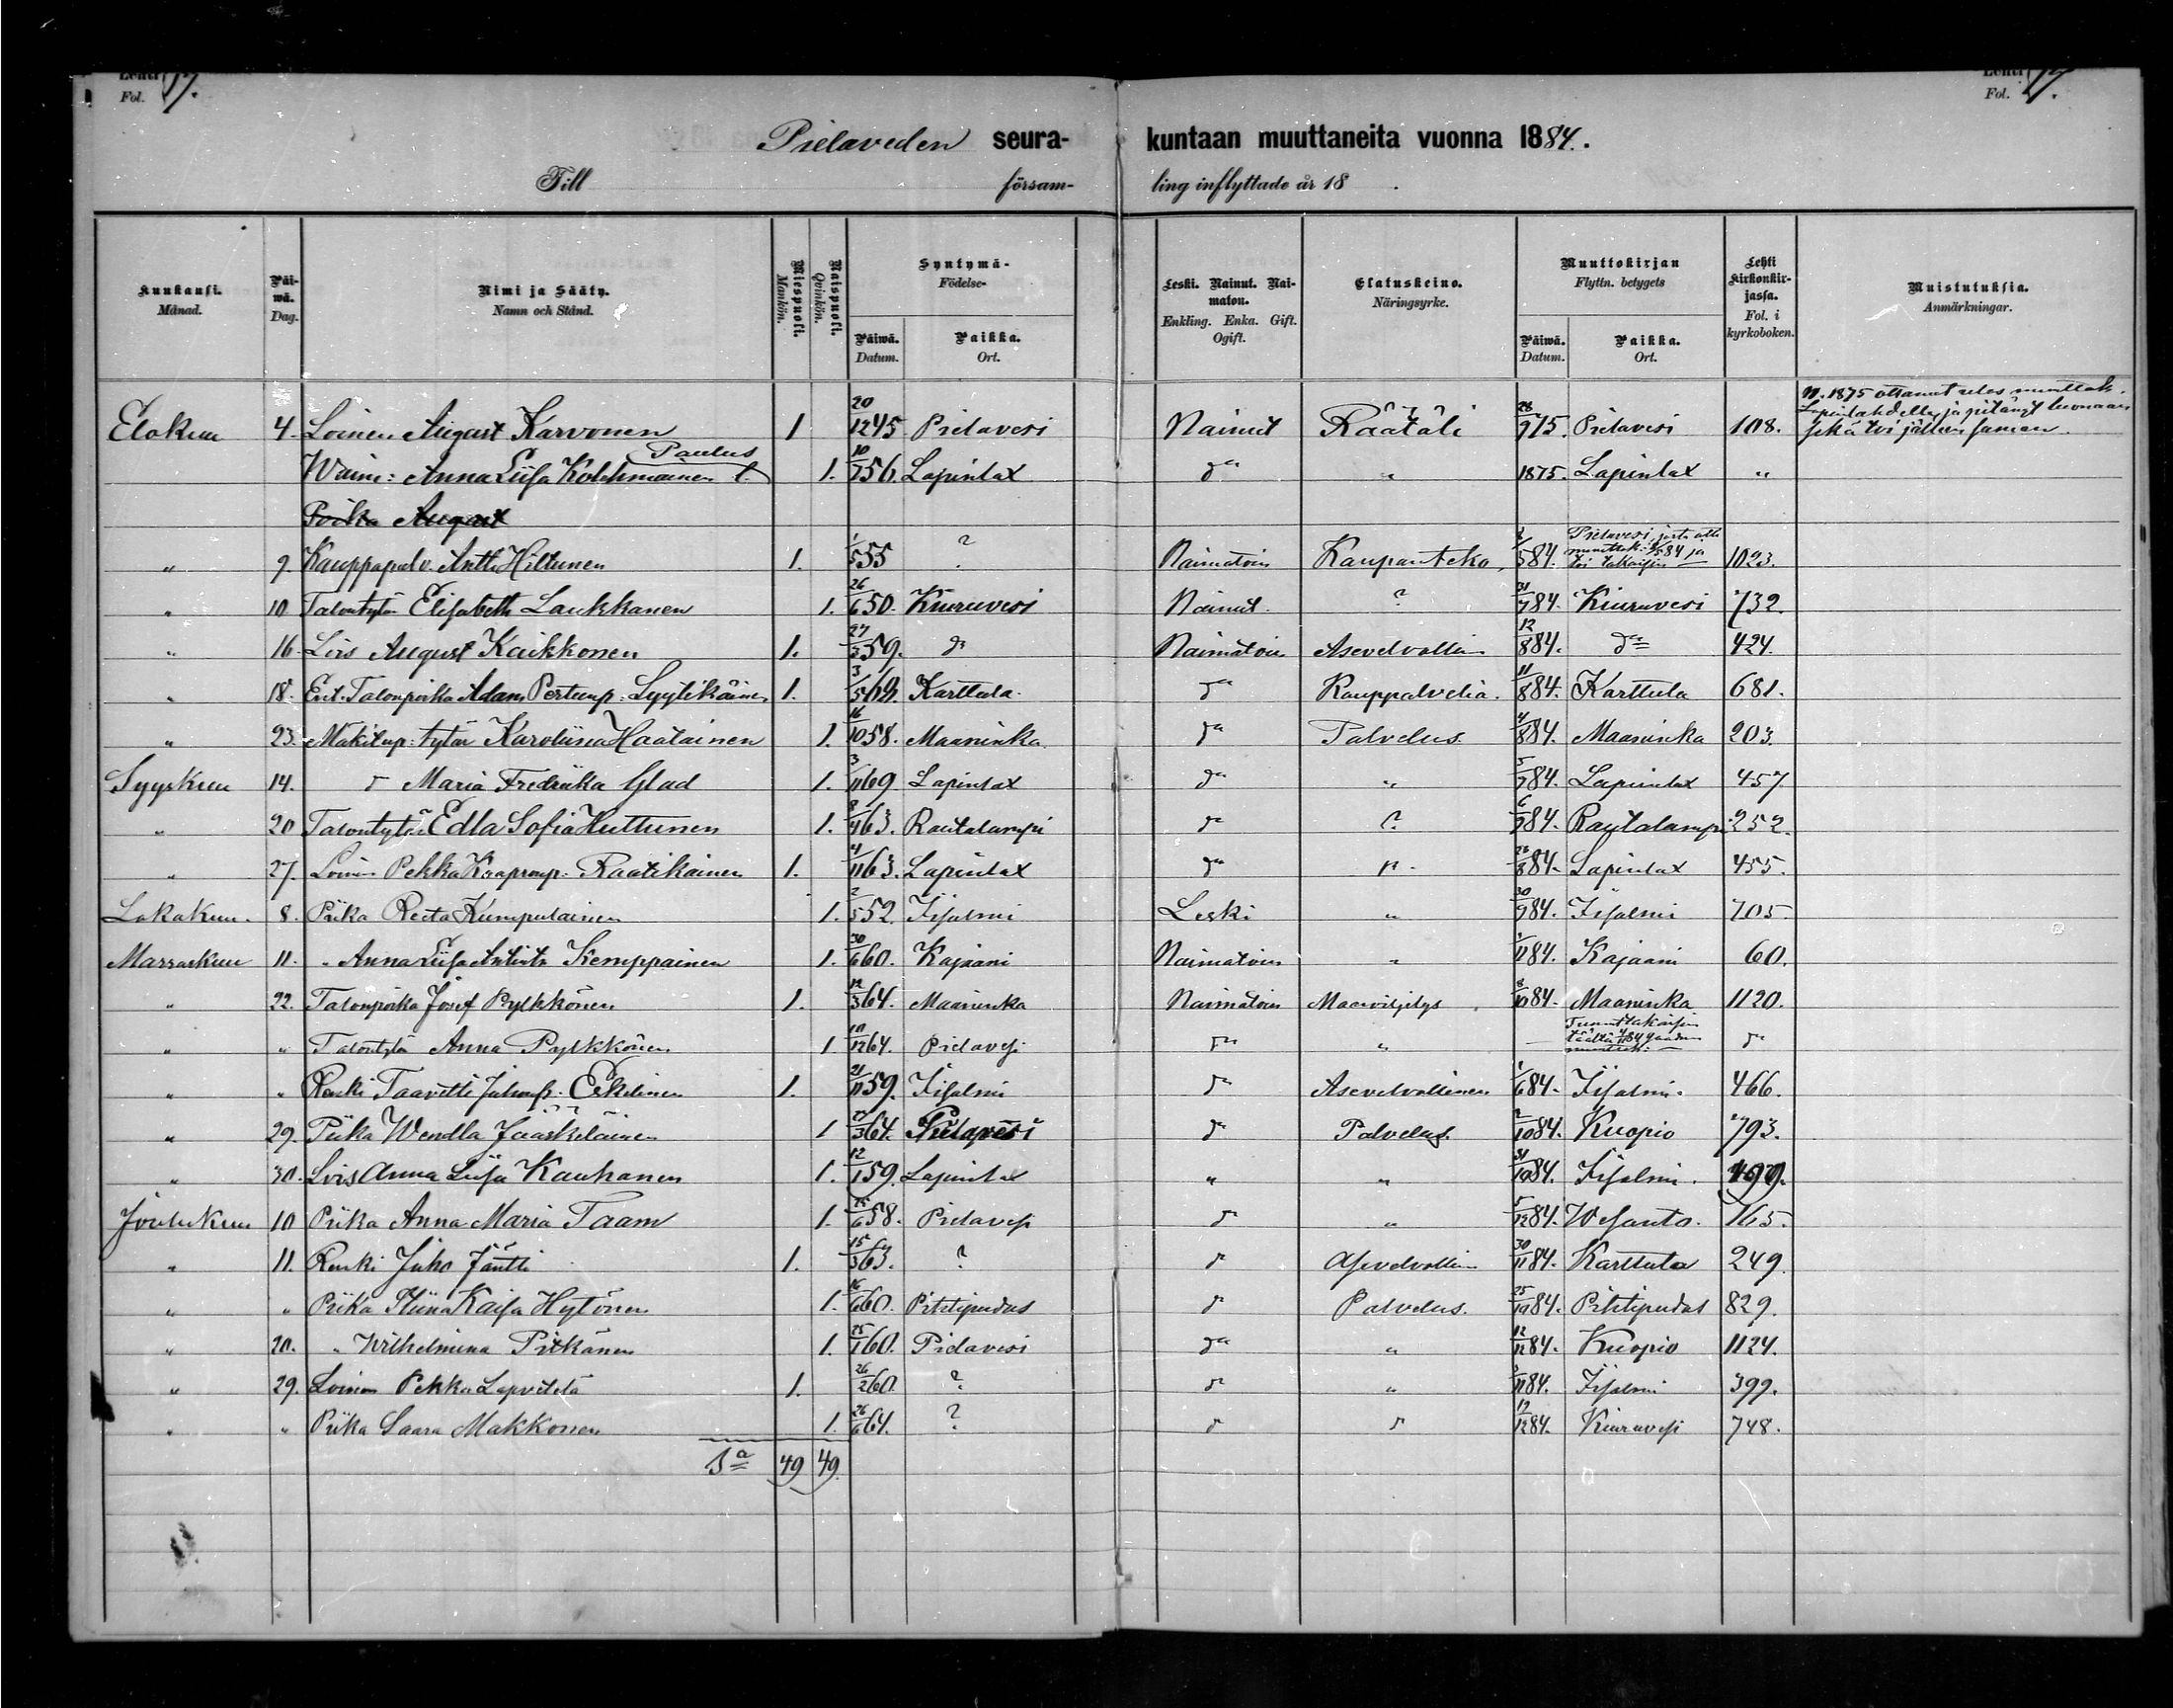 Lehti 17.
Fol.
Lehti 17.
Fol.
Pielaveden seura-kuntaan muuttaneita vuonna 1884.
Till försam-ling inflyttade år 18 .
Kuukausi. Månad. Päiwä. Dag. Nimi ja Sääty. Namn och Stånd. Miespuoli. Mankön. Naispuoli. Qvinkön. Syntymä- Födelse- Päiwä. Datum. Paikka. Ort. Leski. Nainut. Naimaton. Enkling. Enka. Gift. Ogift. Elatuskeino. Näringsyrke. Muuttokirjan Flyttn. betygets Päiwä. Datum. Paikka. Ort. Lehti Kirkonkirjassa. Fol. i kyrkoboken. Muistutuksia. Anmärkningar.
Elokuu 4. Loinen August Karvonen 1 20/12 45 Pielavesi Nainut Räätäli 28/9 75. Pielavesi 108. W. 1875 ottanut ulos muuttok. Lapinlahdelle, ja pitänyt luonaan sekä toi jälleen saman.
Waim: Anna Liisa Kolehmainen Paulus t. 1. 10/7 56. Lapinlax d:o " 1875. Lapinlax "
Poika August
" 9. Kauppapalv. Antti Hiltunen 1. 1/5 55 ? Naimatoin Kaupanteko, /5 84. Pielavesi, josta otti muuttok. /5 84 ja toi takaisin 1023.
" 10 Talontytär Elisabeth Laukkanen 1. 26/6 50. Kiuruvesi Nainut. ? 31/7 84. Kiuruvesi 732.
" 16. Lois August Kaikkonen 1. 27/3 59. d:o Naimatoin Asevelvollin 12/8 84. d:o 424.
" 18. Ent. Talonpoika Adam Pertunp. Lyytikäinen 1. 3/5 62. Karttula. d:o Kauppalvelia. 11/8 84. Karttula 681.
" 23. Mäkitup: tytär Karoliina Haatainen 1. 16/10 58. Maaninka. d:o Palvelus. 4/8 84. Maaninka 203.
Syyskuu 14. d:o Maria Fredriika Glad 1. 3/11 69. Lapinlax d:o " 5/7 84. Lapinlax 457
" 20 Talontytär Edla Sofia Huttunen 1. 8/4 63. Rautalampi d:o ? 6/9 84. Rautalampi 252.
" 27. Loinen Pekka Kaapronp. Raatikainen 1. 4/11 63. Lapinlax d:o " 26/8 84. Lapinlax 455.
Lokakuu. 8. Piika Reeta Kumpulainen 1. 2/5 52. Iisalmi Leski " 30/9 84. Iisalmi 705.
Marraskuu 11. " Anna Liisa Antint. Kemppainen 1. 30/6 60. Kajaani Naimatoin " 1/11 84. Kajaani 60.
" 22. Talonpoika Josef Pylkkönen 1. 12/3 64. Maaninka Naimatoin Maanviljelys 8/10 84. Maaninka 1120.
" " Talontytär Anna Pylkkönen 1 10/12 64. Pielavesi d:o " — d:o
" " Renki Taavetti Juhonp. Eskelinen 1. 21/11 59. Iisalmi d:o Asevelvollinen 1/6 84. Iisalmi. 466.
" 29. Piika Wendla Jääskeläinen 1 24/3 64. Pielavesi d:o Palvelus. 2/10 84. Kuopio 793.
" 30. Lois Anna Liisa Kauhanen 1. 12/1 59. Lapinlax " " 31/10 84. Iisalmi. 499.
Joulukuu 10 Piika Anna Maria Taam 1. 25/6 58. Pielavesi d:o " 5/12 84. Wesanto. 165.
" 11. Renki Juho Jäntti 1. 15/3 63. ? d:o Asevelvollin 30/11 84. Karttula 249.
" " Piika Stiina Kaisa Hytönen 1. 16/6 60. Pihtipudas d:o Palvelus. 25/10 84. Pihtipudas 829.
" 20. " Wilhelmina Pitkänen 1. 25/1 60. Pielavesi d:o " 12/12 84. Kuopio 1124.
" 29. Loinen Pekka Lapveteläinen 1. 26/2 60. ? d:o " 3/11 84. Iisalmi 399.
" " Piika Saara Makkonen 1. 26/6 64. ? d:o d:o 19/12 84. Kiuruvesi 748.
S:a 49 49.